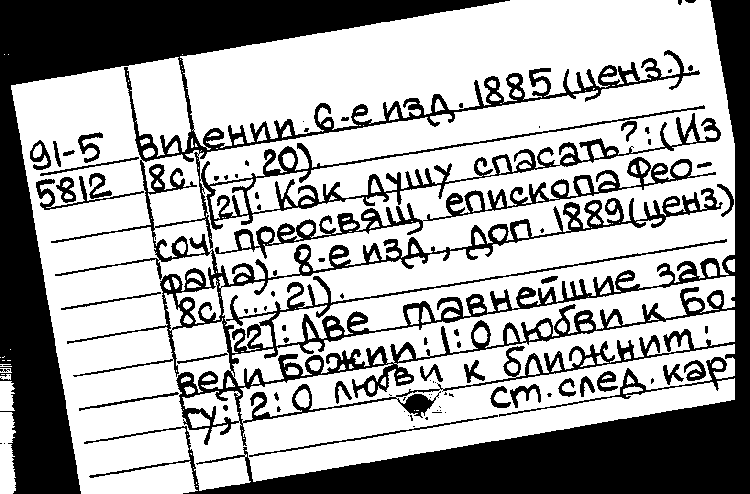 91-5 видении. 6-е изд. 1885 (ценз.).
5812 8с. (...; 20).
[21]: Как душу спасать?: (Из
соч. преосвящ. епископа Фео-
фана). 8-е изд., доп. 1889 (ценз.)
8с. (...; 21).
[22]: Две главнейшие запо
веди Божии: 1: О любви к Бо-
гу; 2: О любви к ближнит:
ст. след. карт